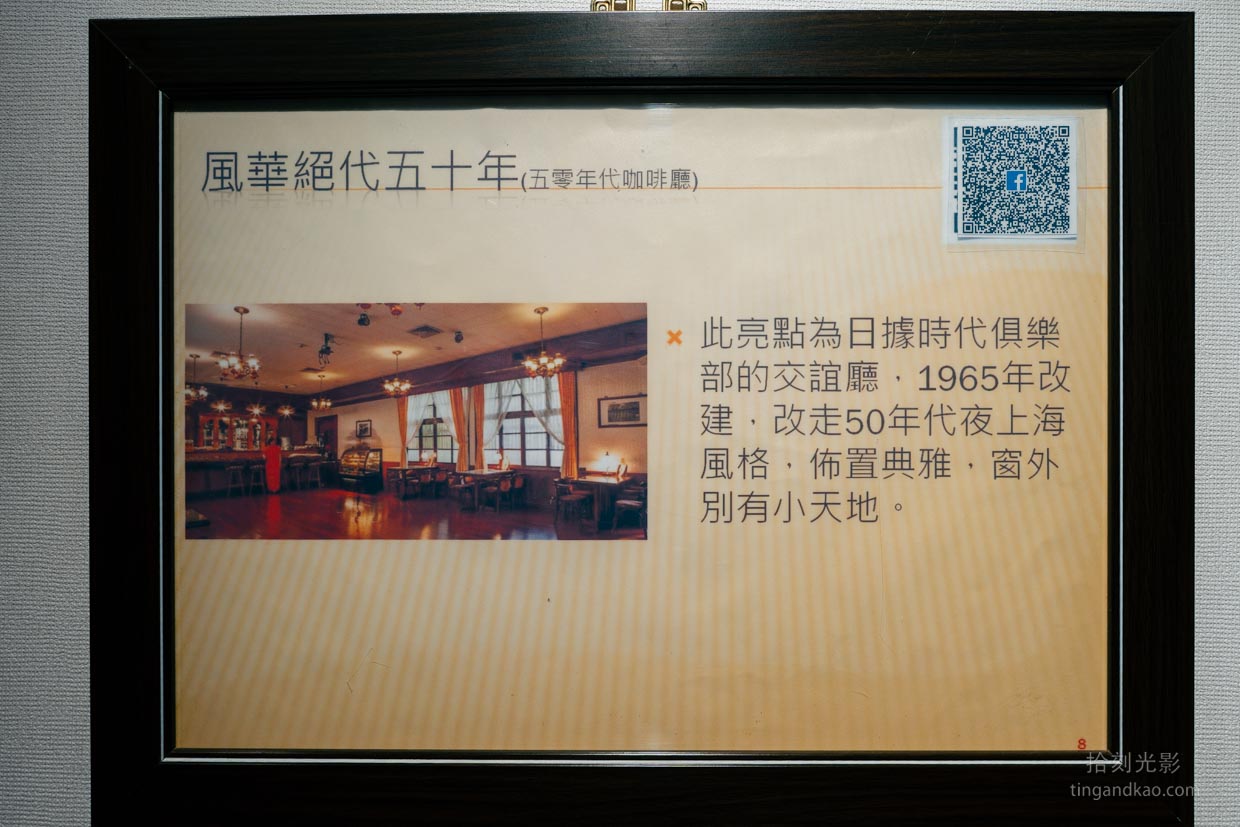 風華絕代五十年(五零年代咖啡廳)
× 此亮點為日據時代俱樂
部的交誼廳，1965年改
建，改走50年代夜上海
風格，佈置典雅，窗外
別有小天地。
8
拾刻光影
tingandkao.com